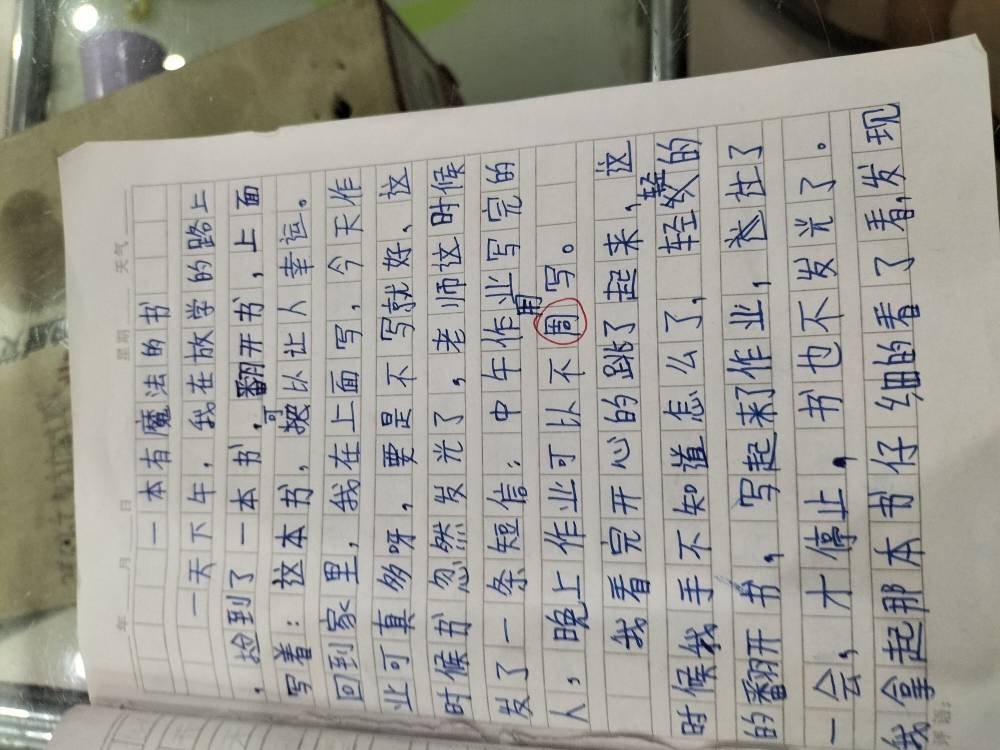 年 月 日 星期 天气
一本有魔法的书
一天下午，我在放学的路上
，捡到了一本书，翻开书，上面
写着：这本书，可以让人幸运。
回到家里，我在上面写，今天作
业可真多呀，要是不写就好，这
时候书忽然发光了，老师这时候
发了一条短信：中午作业写完的
人，晚上作业可以不用写。
我看完开心的跳了起来，这
时候我手不知道怎么了，轻轻的
的翻开书，写起来了作业，过了
一会，才停止，书也不发光了。
我拿起那本书仔细的看了看，发现
评语：